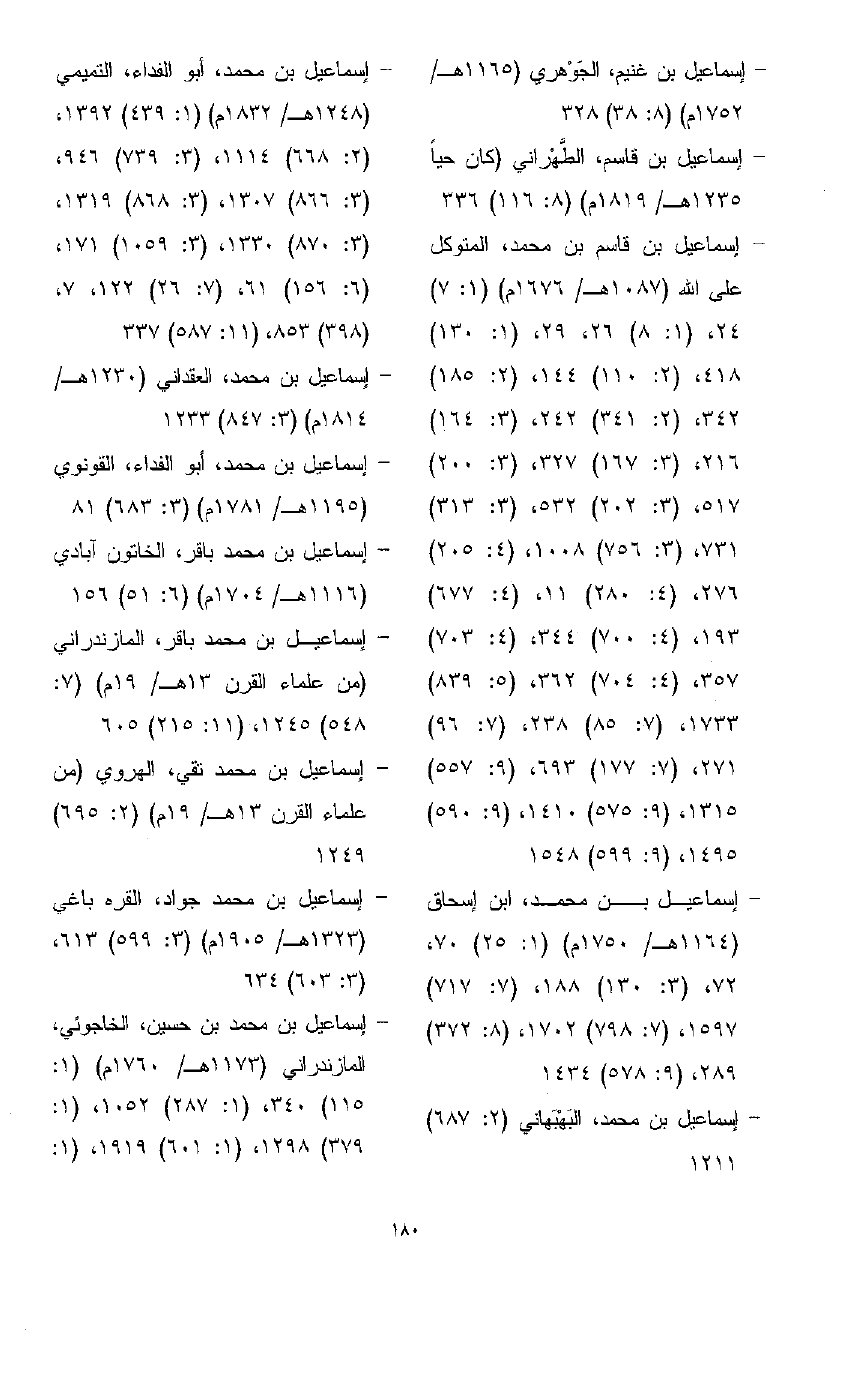 - إسماعيل بن غنيم، الجَوْهري (١١٦٥هـ/
١٧٥٢م) (٨: ٣٨) ٣٢٨
- إسماعيل بن قاسم، الطَّهْراني (كان حياً
١٢٣٥هـ/ ١٨١٩م) (٨: ١١٦) ٣٣٦
- إسماعيل بن قاسم بن محمد، المتوكل
على الله (١٠٨٧هـ/ ١٦٧٦م) (١: ٧)
٢٤، (١: ٨) ٢٦، ٢٩، (١: ١٣٠)
٤١٨، (٢: ١١٠) ١٤٤، (٢: ١٨٥)
٣٤٢، (٢: ٣٤١) ٢٤٢، (٣: ١٦٤)
٢١٦، (٣: ١٦٧) ٣٢٧، (٣: ٢٠٠)
٥١٧، (٣: ٢٠٢) ٥٣٢، (٣: ٣١٣)
٧٣١، (٣: ٧٥٦) ١٠٠٨، (٤: ٢٠٥)
٢٧٦، (٤: ٢٨٠) ١١، (٤: ٦٧٧)
١٩٣، (٤: ٧٠٠) ٣٤٤، (٤: ٧٠٣)
٣٥٧، (٤: ٧٠٤) ٣٦٢، (٥: ٨٣٩)
١٧٣٣، (٧: ٨٥) ٢٣٨، (٧: ٩٦)
٢٧١، (٧: ١٧٧) ٦٩٣، (٩: ٥٥٧)
١٣١٥، (٩: ٥٧٥) ١٤١٠، (٩: ٥٩٠)
١٤٩٥، (٩: ٥٩٩) ١٥٤٨
- إسماعيل بن محمد، ابن إسحاق
(١١٦٤هـ/ ١٧٥٠م) (١: ٢٥) ٧٠،
٧٢، (٣: ١٣٠) ١٨٨، (٧: ٧١٧)
١٥٩٧، (٧: ٧٩٨) ١٧٠٢، (٨: ٣٧٢)
٢٨٩، (٩: ٥٧٨) ١٤٣٤
- إسماعيل بن محمد، البَهْبَهاني (٢: ٦٨٧)
١٢١١
- إسماعيل بن محمد، أبو الفداء، التميمي
(١٢٤٨هـ/ ١٨٣٢م) (١: ٤٣٩) ١٣٩٢،
(٢: ٦٦٨) ١١١٤، (٣: ٧٣٩) ٩٤٦،
(٣: ٨٦٦) ١٣٠٧، (٣: ٨٦٨) ١٣١٩،
(٣: ٨٧٠) ١٣٣٠، (٣: ١٠٥٩) ١٧١،
(٦: ١٥٦) ٦١، (٧: ٢٦) ١٢٢، ٧،
(٣٩٨) ٨٥٣، (١١: ٥٨٧) ٣٣٧
- إسماعيل بن محمد، العقداني (١٢٣٠هـ/
١٨١٤م) (٣: ٨٤٧) ١٢٣٣
- إسماعيل بن محمد، أبو الفداء، القونوي
(١١٩٥هـ/ ١٧٨١م) (٣: ٦٨٣) ٨١
- إسماعيل بن محمد باقر، الخاتون آبادي
(١١١٦هـ/ ١٧٠٤م) (٦: ٥١) ١٥٦
- إسماعيل بن محمد باقر، المازندراني
(من علماء القرن ١٣هـ/ ١٩م) (٧:
٥٤٨) ١٢٤٥، (١١: ٢١٥) ٦٠٥
- إسماعيل بن محمد نقي، الهروي (من
علماء القرن ١٣هـ/ ١٩م) (٢: ٦٩٥)
١٢٤٩
- إسماعيل بن محمد جواد، القره باغي
(١٣٢٣هـ/ ١٩٠٥م) (٣: ٥٩٩) ٦١٣،
(٣: ٦٠٣) ٦٣٤
- إسماعيل بن محمد بن حسين، الخاجوئي،
المازندراني (١١٧٣هـ/ ١٧٦٠م) (١:
١١٥) ٣٤٠، (١: ٢٨٧) ١٠٥٢، (١:
٣٧٩) ١٢٩٨، (١: ٦٠١) ١٩١٩، (١:
١٨٠